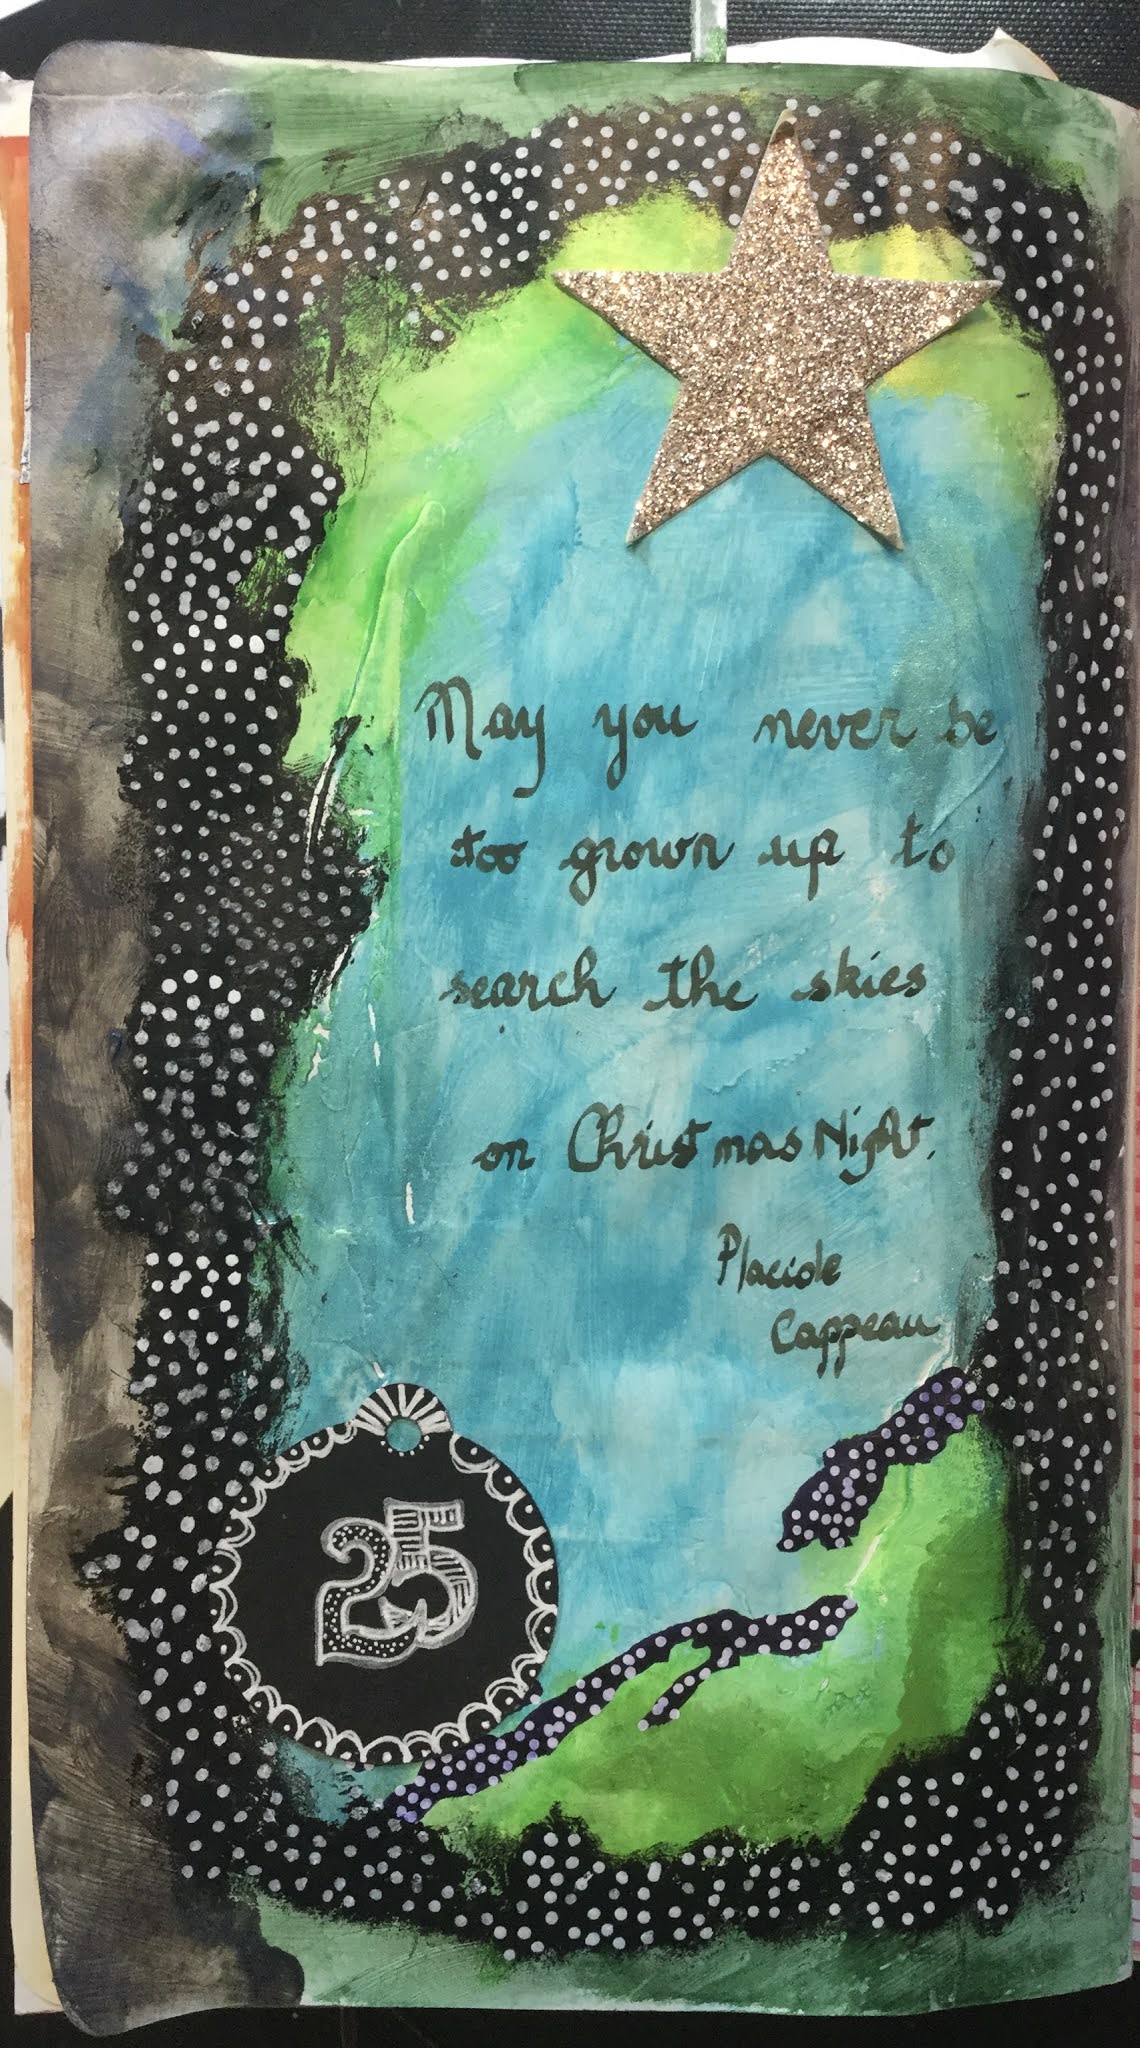 May you never be
too grown up to
search the skies
on Christmas Night.
Placide
Cappeau
25